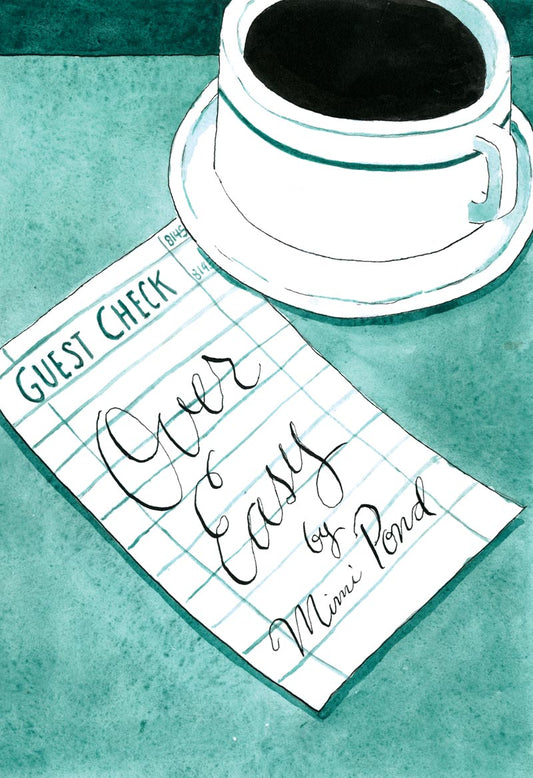 8145
GUEST CHECK
Over
Easy
by
Mimi Pond